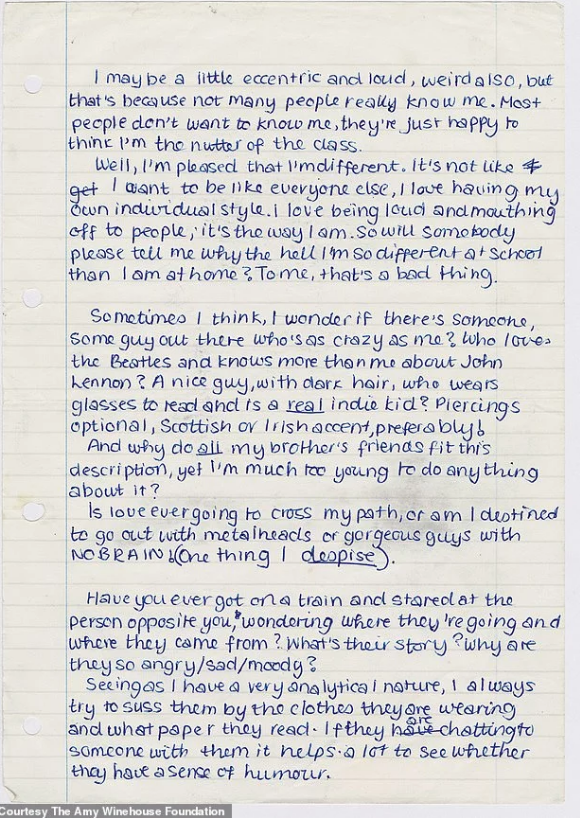 I may be a little eccentric and loud, weird also, but
that's because not many people really know me. Most
people don't want to know me, they're just happy to
think I'm the nutter of the class.
Well, I'm pleased that I'm different. It's not like
get I want to be like everyone else, I love having my
own individual style. I love being loud and mouthing
off to people, it's the way I am. So will somebody
please tell me why the hell I'm so different at school
than I am at home? To me, that's a bad thing.
Sometimes I think, I wonder if there's someone,
some guy out there who's as crazy as me? Who loves
the Beatles and knows more than me about John
Lennon? A nice guy, with dark hair, who wears
glasses to read and is a real indie kid? Piercings
optional, Scottish or Irish accent, preferably!
And why do all my brother's friends fit this
description, yet I'm much too young to do anything
about it?
Is love ever going to cross my path, or am I destined
to go out with metalheads or gorgeous guys with
NO BRAIN! (One thing I despise).
Have you ever got on a train and stared at the
person opposite you, wondering where they're going and
where they came from? What's their story? Why are
they so angry/sad/moody?
Seeing as I have a very analytical nature, I always
try to suss them by the clothes they are wearing
and what paper they read. If they have are chatting to
someone with them it helps a lot to see whether
they have a sense of humour.
Courtesy The Amy Winehouse Foundation